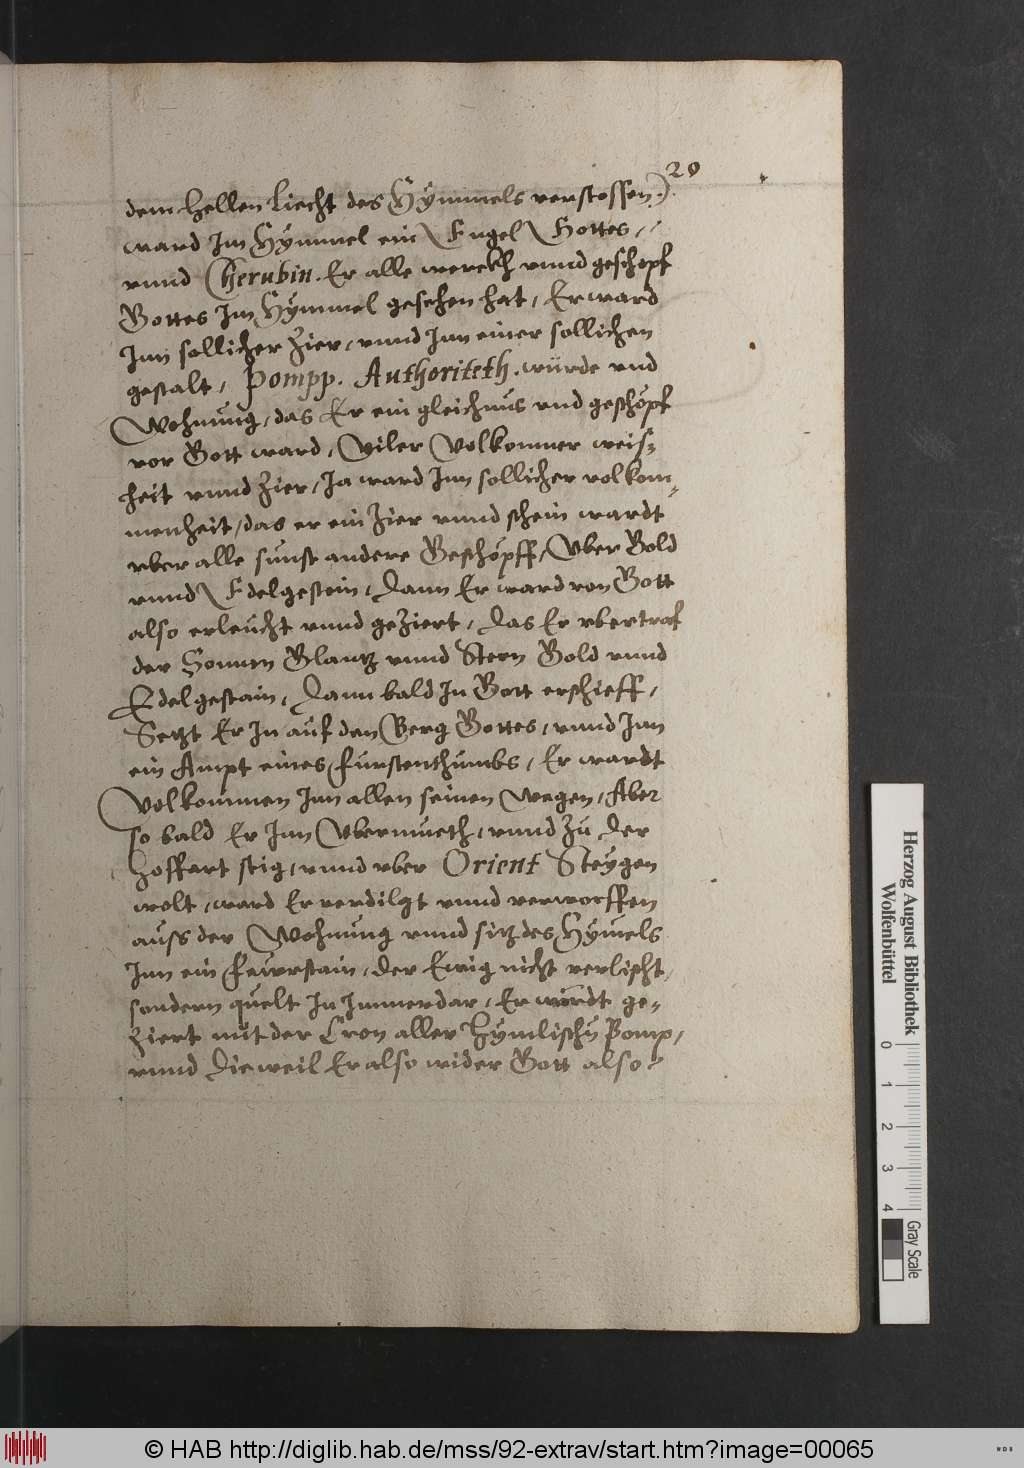 20
dem hellen Liecht des Hÿmmels verstossen.)
ward Im Hÿmmel ein Engel Gottes,
vnnd Cherubin. Er alle werckh vnnd geschöpf
Gottes Im Hÿmmel gesehen hat, Er ward
Inn sollicher Zier, vnnd Inn einer sollichen
gestalt, Pompp. Authoriteth. würde vnd
Wohnung, das Er ein gleichnus vnd geschöpf
vor Gott ward, Viler Volkomner weis=
heit vnnd Zier, Ja ward Inn sollicher volkom=
menheit, das er ein Zier vnnd schein wardt
vber alle sunst andere Geschöpff, Vber Gold
vnnd Edelgestein, Dann Er ward von Gott
also erleucht vnnd geziert, Das Er vbertraf
der Sonnen Glantz vnnd Stern Gold vnnd
Edelgestain, Dann bald In Gott erschieff,
Setzt Er In auf den Berg Gottes, vnnd Inn
ein Ampt eines Furstenthumbs, Er wardt
Volkommen Inn allen seinen Wegen, Aber
so bald Er Inn Vbermueth, vnnd Zu der
Hoffart stig, vnnd vber Orient Steÿgen
wolt, ward Er verdilgt vnnd verworffen
auss der Wohnung vnnd sitz des Hÿmels
Inn ein Fewrstain, der Ewig nicht verlischt,
sondern quelt In Immerdar, Er würdt ge=
ziert mit der Cron aller Hÿmlischn Pomp,
vnnd Dieweil Er also wider Gott also
Herzog August Bibliothek
Wolfenbüttel
0 1 2 3 4
Gray Scale
© HAB http://diglib.hab.de/mss/92-extrav/start.htm?image=00065
WDB